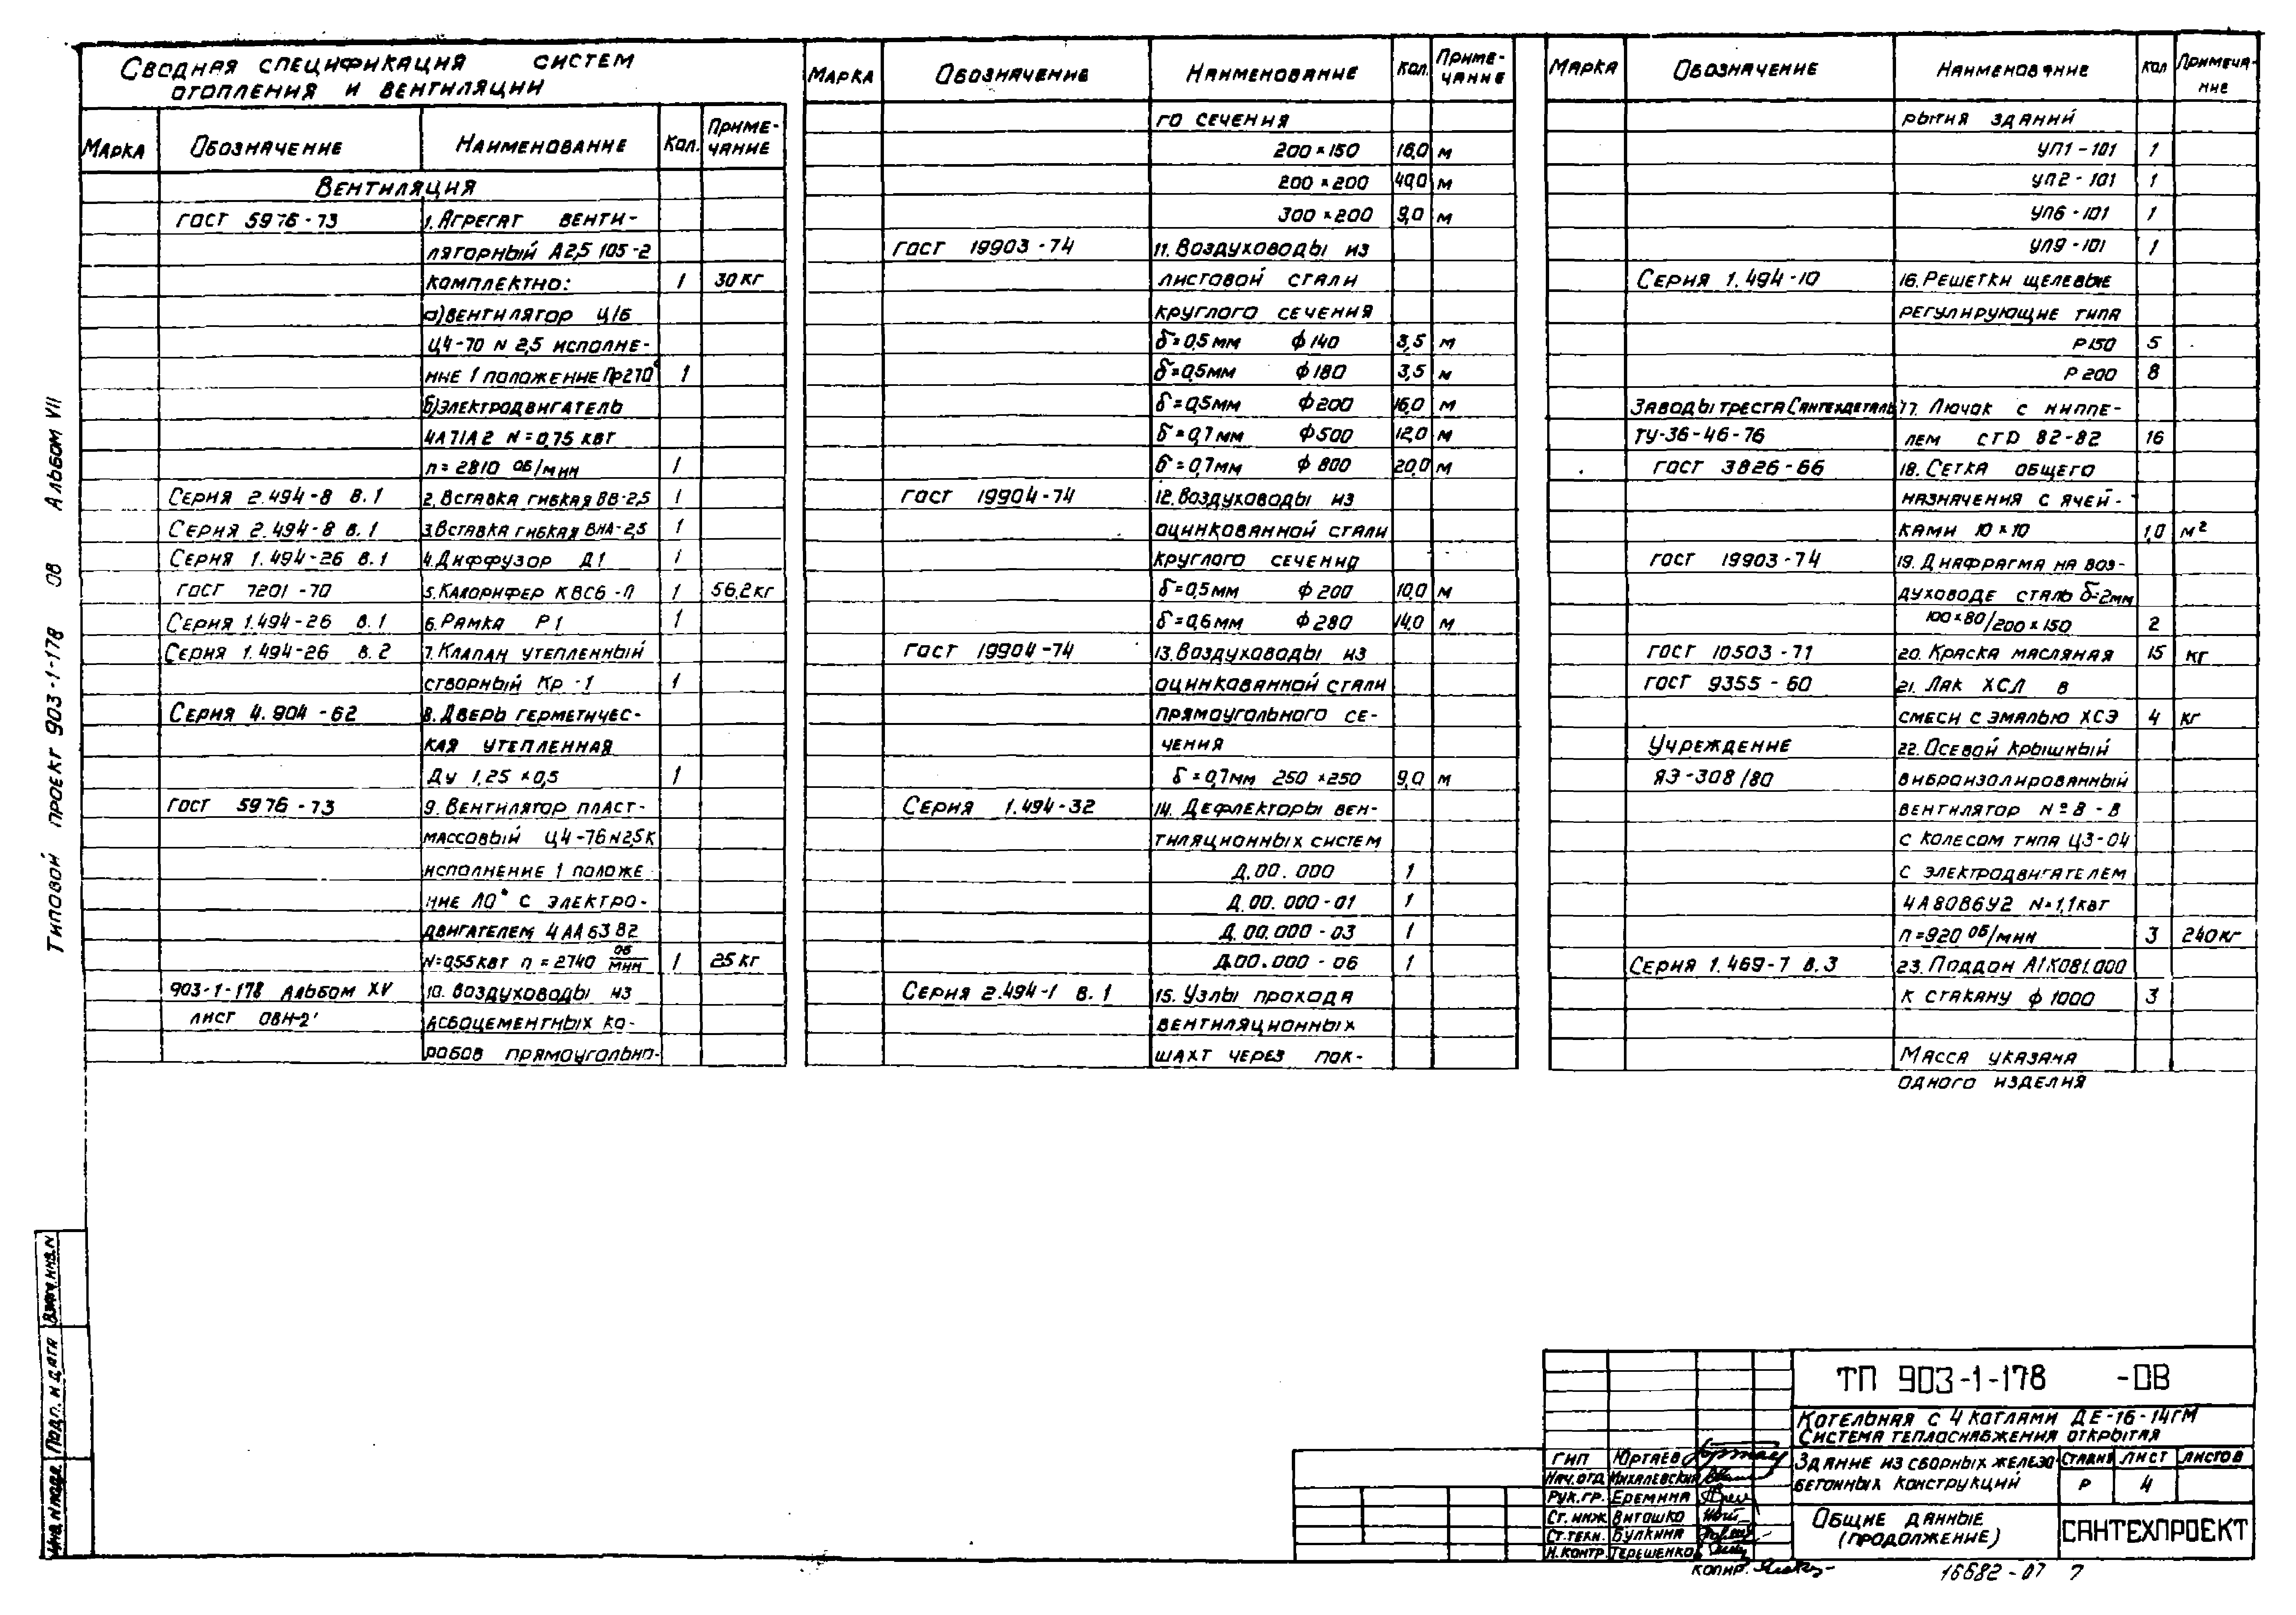 Сводная спецификация систем
отопления и вентиляции
Марка Обозначение Наименование Кол. Приме-
чание
Вентиляция
ГОСТ 5976-73 1. Агрегат венти-
ляторный А2,5 105-2
комплектно: 1 30 кг
а) вентилятор ц/б
Ц4-70 N 2,5 исполне-
ние 1 положение Пр270° 1
б) электродвигатель
4А71А2 N=0,75 квт
n=2810 об/мин 1
Серия 2.494-8 в.1 2. Вставка гибкая ВВ-2,5 1
Серия 2.494-8 в.1 3. Вставка гибкая ВНА-2,5 1
Серия 1.494-26 в.1 4. Диффузор Д1 1
ГОСТ 7201-70 5. Калорифер КВС6-П 1 56,2 кг
Серия 1.494-26 в.1 6. Рамка Р1 1
Серия 1.494-26 в.2 7. Клапан утепленный
створный Кр-1 1
Серия 4.904-62 8. Дверь герметичес-
кая утепленная
Ду 1,25×0,5 1
ГОСТ 5976-73 9. Вентилятор пласт-
массовый Ц4-76 N2,5К
исполнение 1 положе
ние Л0° с электро-
двигателем 4АА63В2
N=0,55 квт n=2740 об/мин 1 25 кг
903-1-178 Альбом XV 10. Воздуховоды из
лист ОВН-2 асбоцементных ко-
робов прямоугольно-
Марка Обозначение Наименование Кол. Приме-
чание
го сечения
200×150 16,0 м
200×200 40,0 м
300×200 9,0 м
ГОСТ 19903-74 11. Воздуховоды из
листовой стали
круглого сечения
δ=0,5мм ф140 3,5 м
δ=0,5мм ф180 3,5 м
δ=0,5мм ф200 16,0 м
δ=0,7мм ф500 12,0 м
δ=0,7мм ф800 20,0 м
ГОСТ 19904-74 12. Воздуховоды из
оцинкованной стали
круглого сечения
δ=0,5мм ф200 10,0 м
δ=0,6мм ф280 14,0 м
ГОСТ 19904-74 13. Воздуховоды из
оцинкованной стали
прямоугольного се-
чения
δ=0,7мм 250×250 9,0 м
Серия 1.494-32 14. Дефлекторы вен-
тиляционных систем
Д.00.000 1
Д.00.000-01 1
Д.00.000-03 1
Д.00.000-06 1
Серия 2.494-1 в.1 15. Узлы прохода
вентиляционных
шахт через пок-
Марка Обозначение Наименование Кол Примеча-
ние
рытия зданий
УП1-101 1
УП2-101 1
УП6-101 1
УП9-101 1
Серия 1.494-10 16. Решетки щелевые
регулирующие типа
Р150 5
Р200 8
Заводы треста Сантехдеталь 17. Лючок с ниппе-
ТУ-36-46-76 лем СТD 82-82 16
ГОСТ 3826-66 18. Сетка общего
назначения с ячей-
ками 10×10 1,0 м²
ГОСТ 19903-74 19. Диафрагма на воз-
духоводе сталь δ=2мм
100×80/200×150 2
ГОСТ 10503-71 20. Краска масляная 15 кг
ГОСТ 9355-60 21. Лак ХСЛ в
смеси с эмалью ХСЭ 4 кг
Учреждение 22. Осевой крышный
ЯЭ-308/80 виброизолированный
вентилятор № 8-В
с колесом типа Ц3-04
с электродвигателем
4А80В6У2 N=1,1квт
n=920 об/мин 3 240 кг
Серия 1.469-7 в.3 23. Поддон А1К081.000
к стакану ф1000 3
Масса указана
одного изделия
Типовой проект 903-1-178 ОВ Альбом VII
Взам. инв. N
Подп. и дата
Инв. N подл.
ТП 903-1-178 -ОВ
Котельная с 4 котлами ДЕ-16-14ГМ
Система теплоснабжения открытая
Здание из сборных железо
бетонных конструкций
Стадия Лист Листов
Р 4
Общие данные
(продолжение)
САНТЕХПРОЕКТ
ГИП Юртаев
Нач. отд. Михалевский
Рук. гр. Еремина
Ст. инж. Витошко
Ст. техн. Булкина
Н. контр. Терешенко
Копир.
16682-07 7